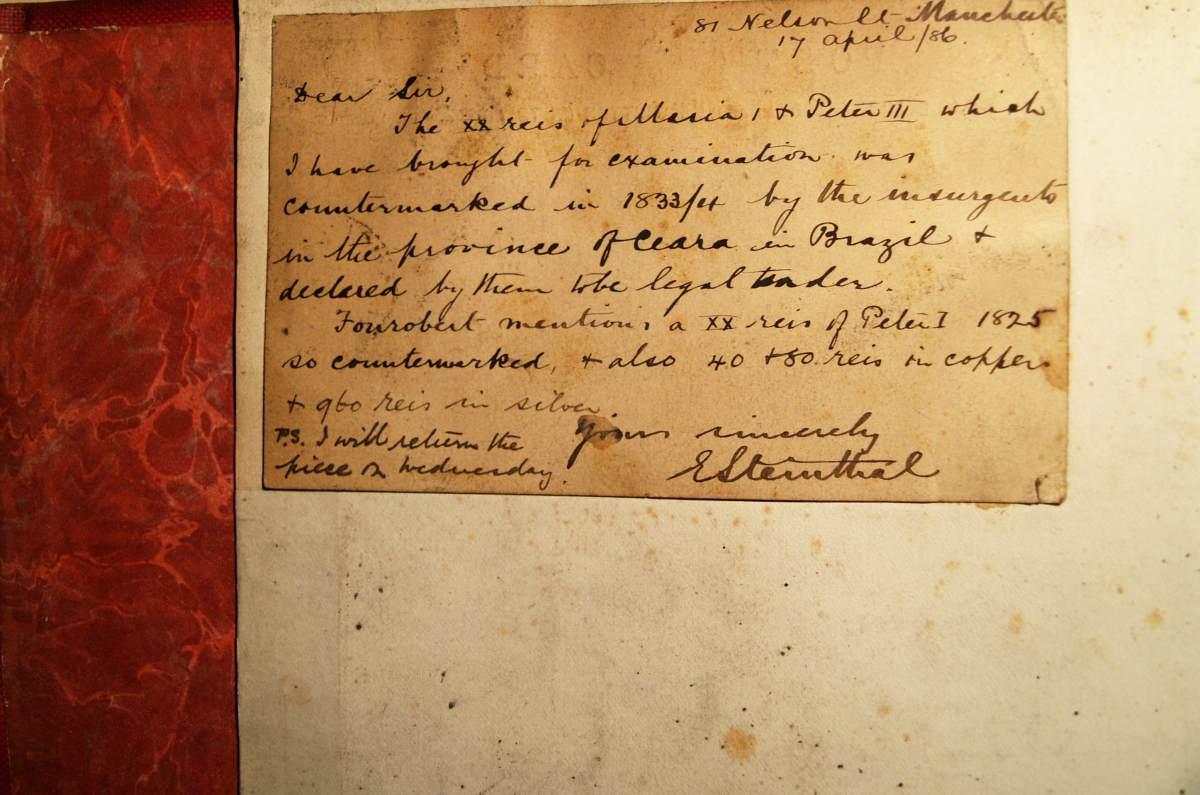 81 Nelson St Manchester
17 April /86.
Dear Sir,
The XX reis of Maria I & Peter III which
I have brought for examination was
countermarked in 1833/4 by the insurgents
in the province of Ceara in Brazil &
declared by them to be legal tender.
Fonrobert mentions a XX reis of Peter I 1825
so countermarked, & also 40 & 80 reis in copper
& 960 reis in silver.
Yours sincerely
P.S. I will return the
piece on Wednesday.
E Steinthal